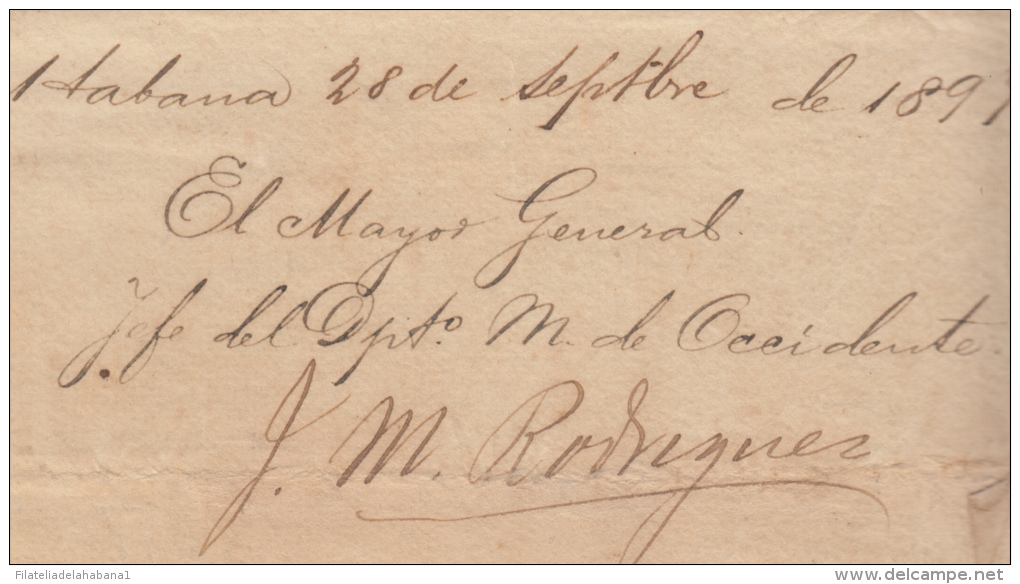 Habana 28 de Septbre de 1897
El Mayor General
Jefe del Dpto. M. de Occidente.
J. M. Rodriguez
Filateliadelahabana1
delcampe.net